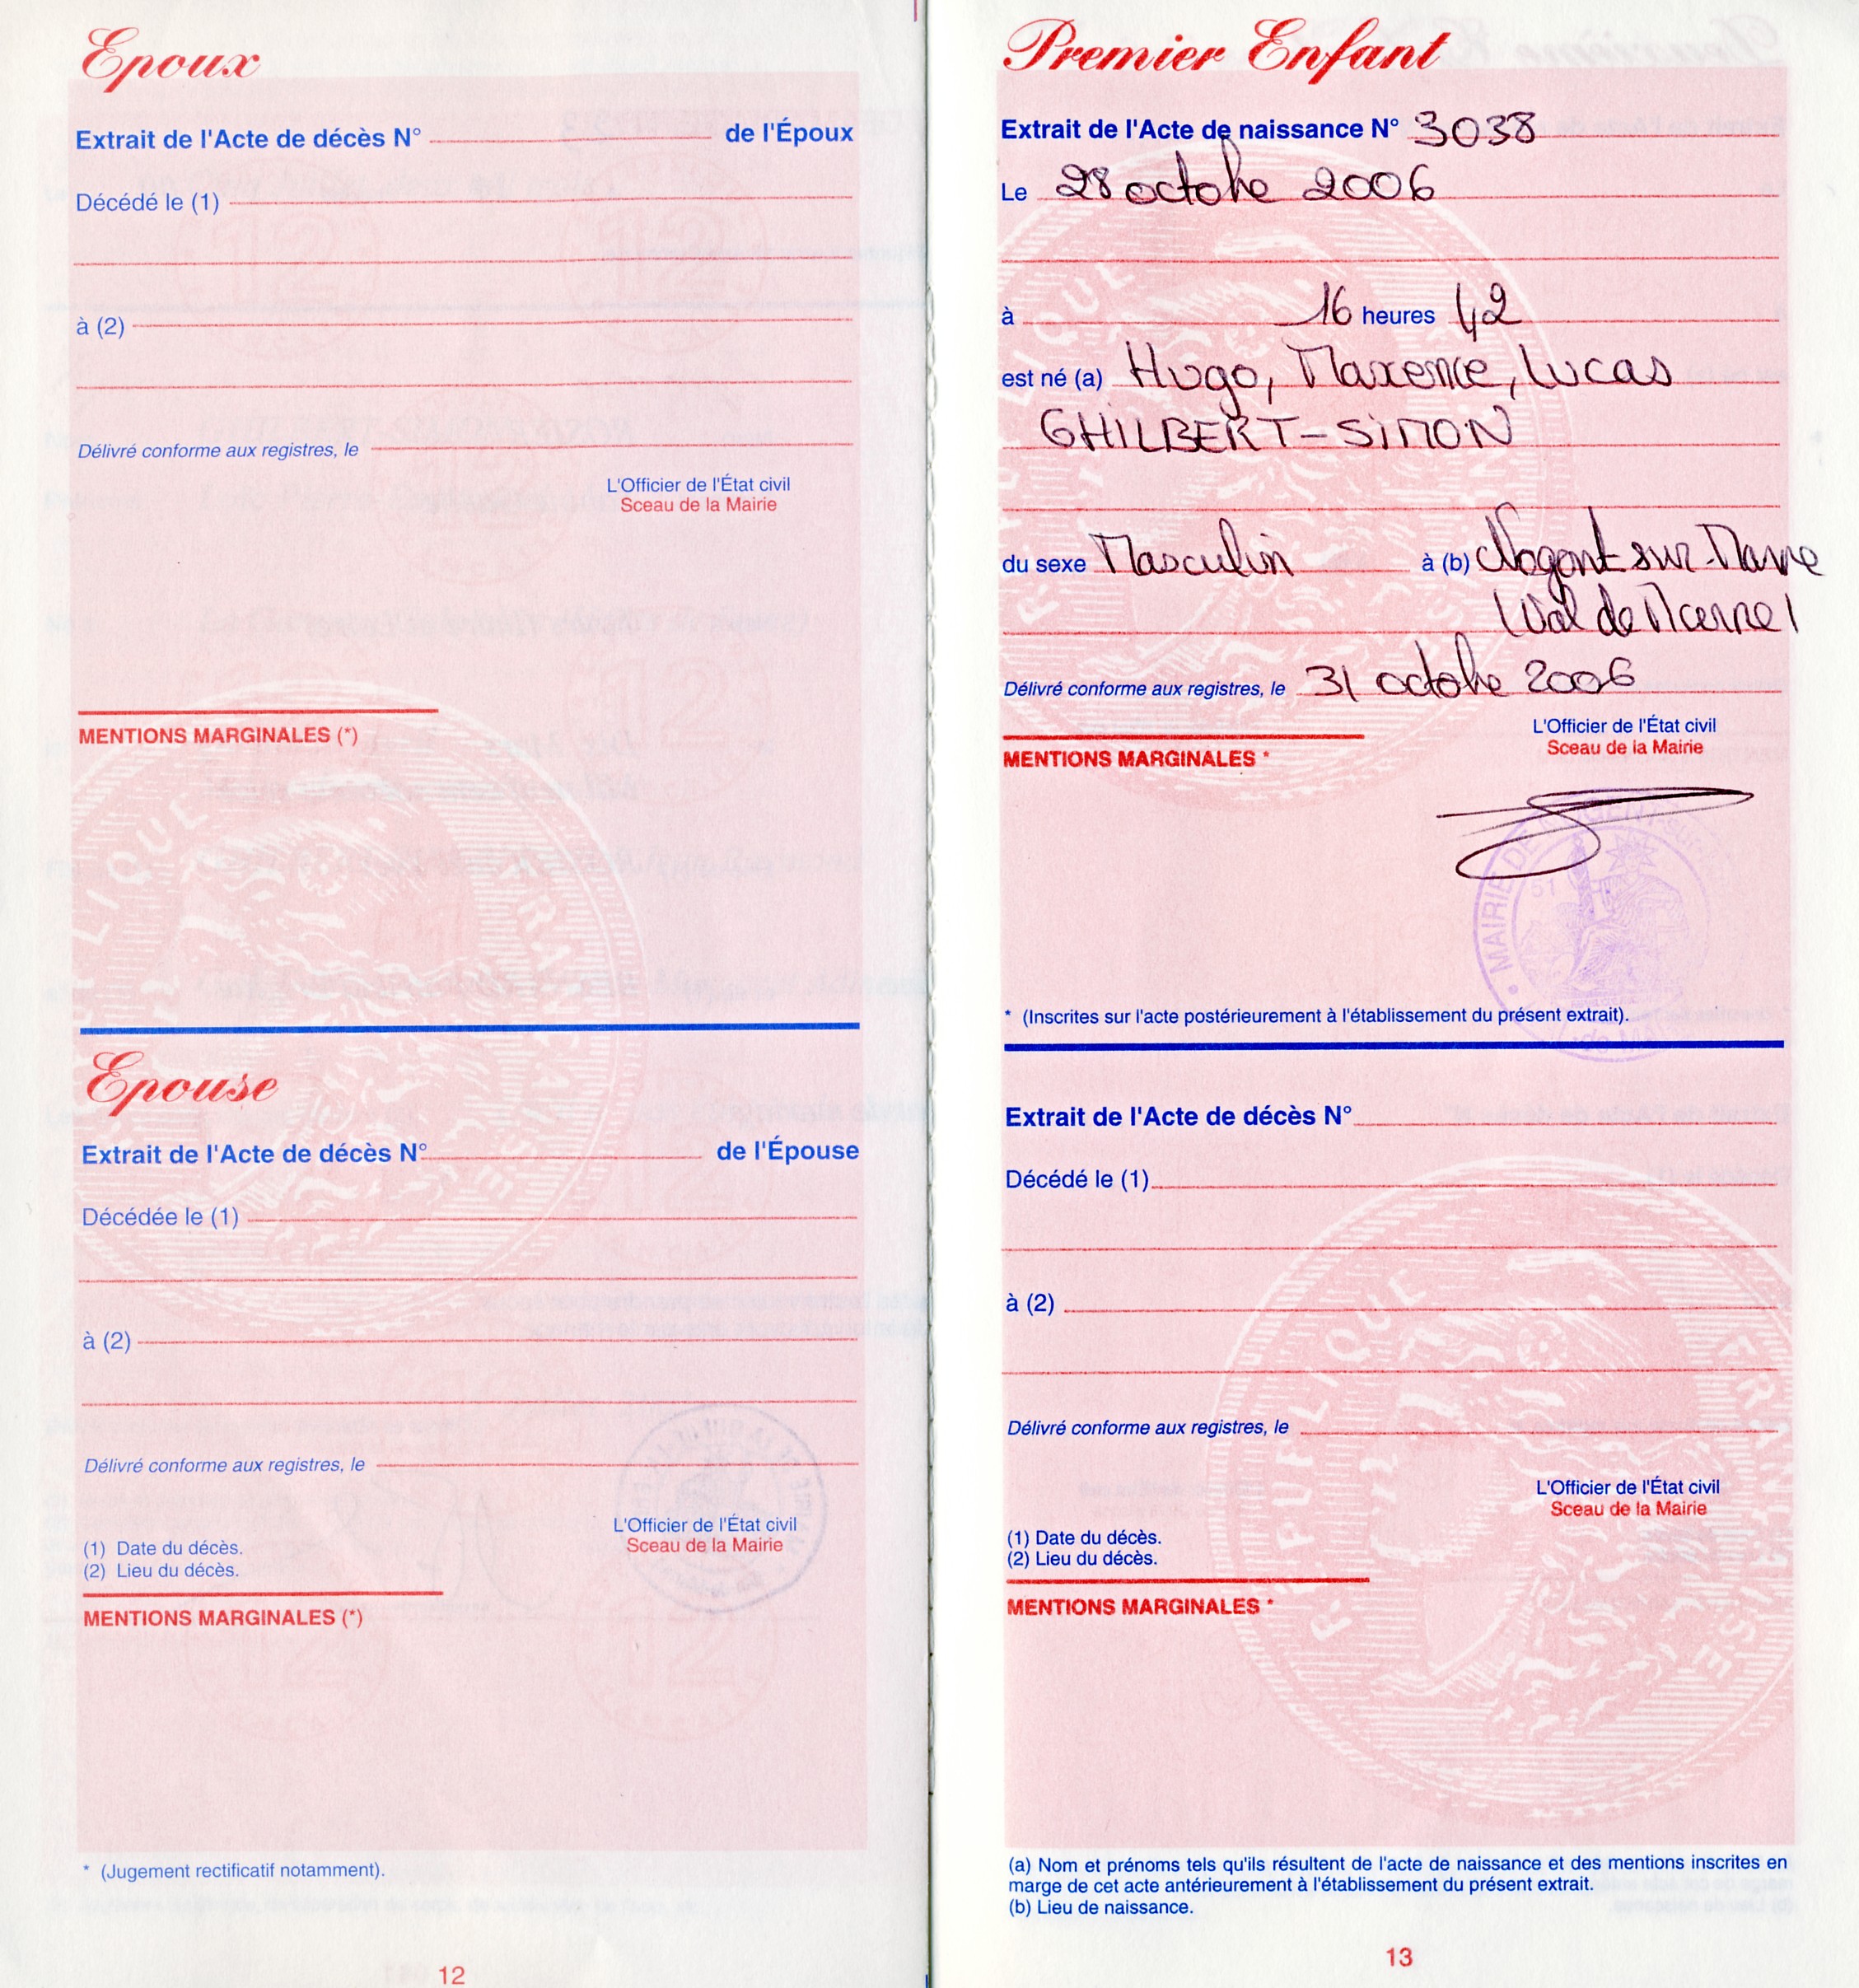 Epoux
Extrait de l'Acte de décès N° de l'Époux
Décédé le (1)
à (2)
Délivré conforme aux registres, le
L'Officier de l'État civil
Sceau de la Mairie
MENTIONS MARGINALES (*)
Epouse
Extrait de l'Acte de décès N° de l'Épouse
Décédée le (1)
à (2)
Délivré conforme aux registres, le
L'Officier de l'État civil
Sceau de la Mairie
(1) Date du décès.
(2) Lieu du décès.
MENTIONS MARGINALES (*)
* (Jugement rectificatif notamment).
12
Premier Enfant
Extrait de l'Acte de naissance N° 3038
Le 28 octobre 2006
à 16 heures 42
est né (a) Hugo, Maxence, Lucas
GHILBERT-SIMON
du sexe Masculin à (b) Nogent-sur-Marne
(Val de Marne)
Délivré conforme aux registres, le 31 octobre 2006
L'Officier de l'État civil
Sceau de la Mairie
MENTIONS MARGINALES *
MAIRIE DE
* (Inscrites sur l'acte postérieurement à l'établissement du présent extrait).
Extrait de l'Acte de décès N°
Décédé le (1)
à (2)
Délivré conforme aux registres, le
L'Officier de l'État civil
Sceau de la Mairie
(1) Date du décès.
(2) Lieu du décès.
MENTIONS MARGINALES *
RÉPUBLIQUE FRANÇAISE
(a) Nom et prénoms tels qu'ils résultent de l'acte de naissance et des mentions inscrites en
marge de cet acte antérieurement à l'établissement du présent extrait.
(b) Lieu de naissance.
13